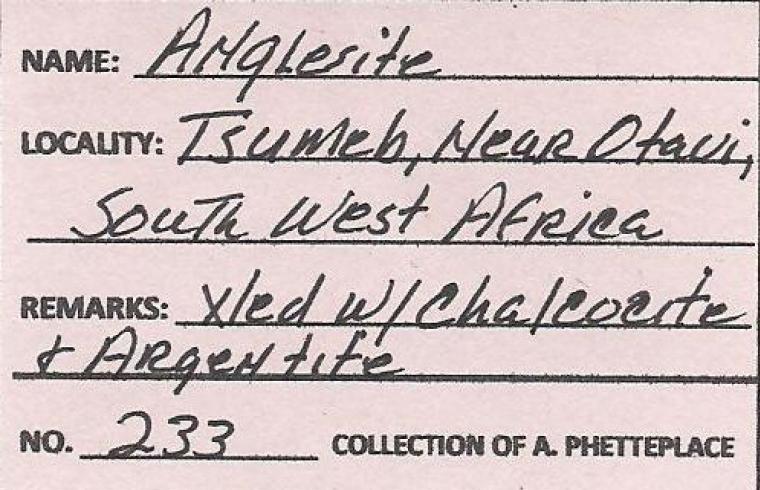 NAME: Anglesite
LOCALITY: Tsumeb, Near Otavi,
South West Africa
REMARKS: Xled w/ Chalcocite
+ Argentite
NO. 233 COLLECTION OF A. PHETTEPLACE